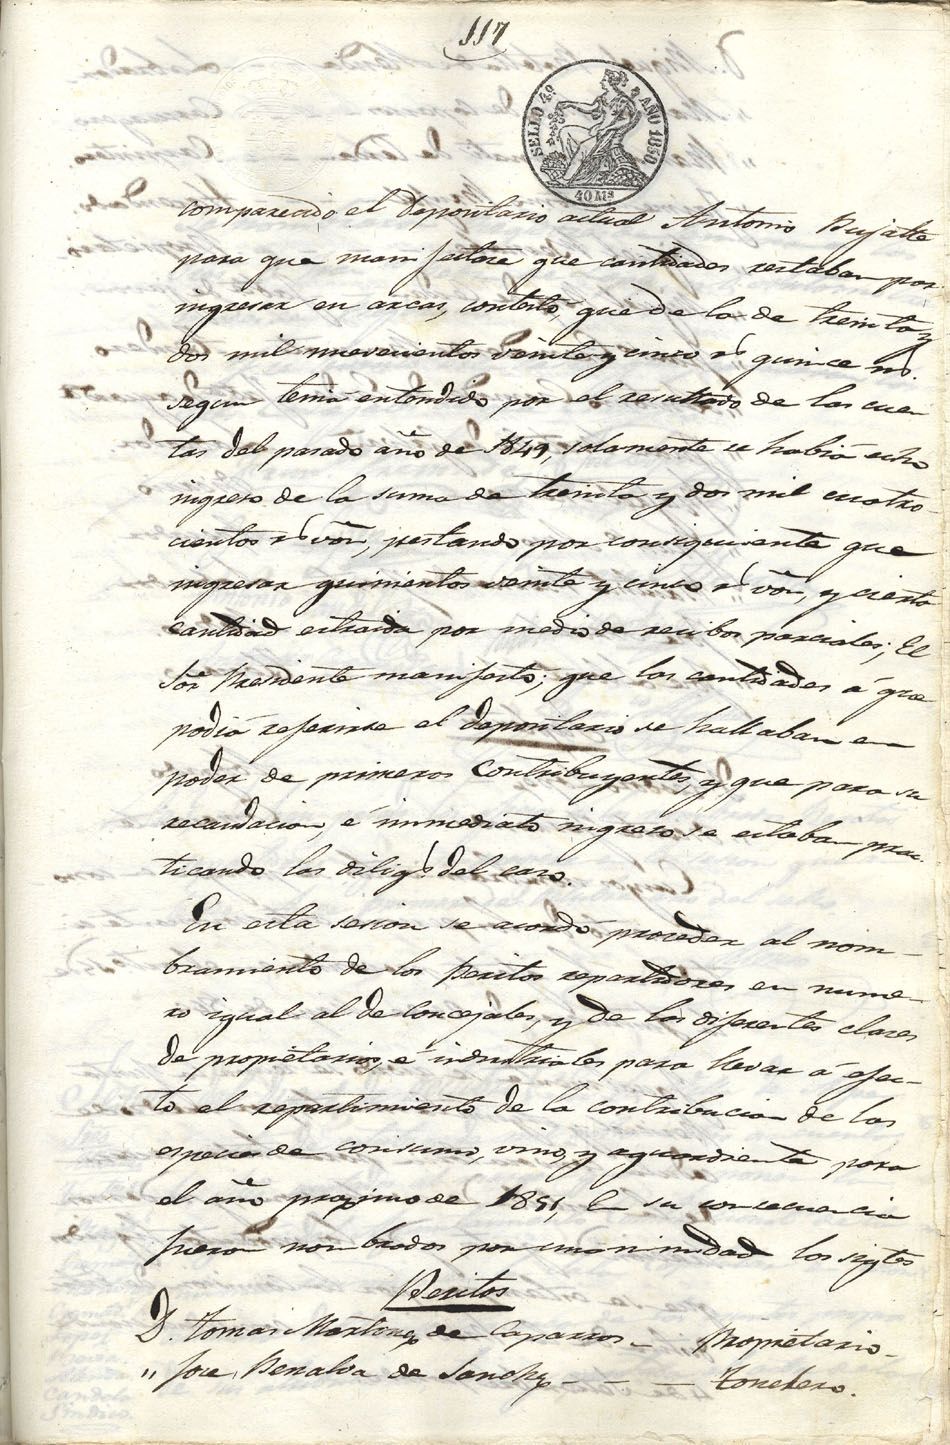 117
SELLO 4º AÑO 1850
40 Mˢ
comparecido el depositario actual Antonio Bujalte
para que manifestase que cantidades restaban por
ingresar en arcas, contestó, que de la de treinta y
dos mil nuevecientos veinte y cinco rˢ quince ms.
segun tenia entendido por el resultado de las cuen
tas del pasado año de 1849, solamente se habia echo
ingreso de la suma de treinta y dos mil cuatro-
cientos rˢ von, restando por consiguiente que
ingresar quinientos veinte y cinco rˢ von, y cierta
cantidad estraida por medio de recibos parciales; El
Sor Presidente manifestó; que las cantidades á que
podia referirse el depositario se hallaban en
poder de primeros Contribuyentes, y que para su
recaudacion, é inmediato ingreso se estaban prac-
ticando las diligˢ del caso.
En esta sesion se acordó proceder al nom-
bramiento de los Peritos repartidores en nume-
ro igual al de Concejales, y de las diferentes clases
de propietarios, é industriales para llevar á efec-
to el repartimiento de la contribucion de las
especies de consumo, vino, y aguardiente para
el año proximo de 1851, En su consecuencia
fueron nombrados por unanimidad los sigtes
Peritos
D. Tomas Martinez de Caparros - Propietario.
" Jose Penalva de Sanchez - - - Tonelero.